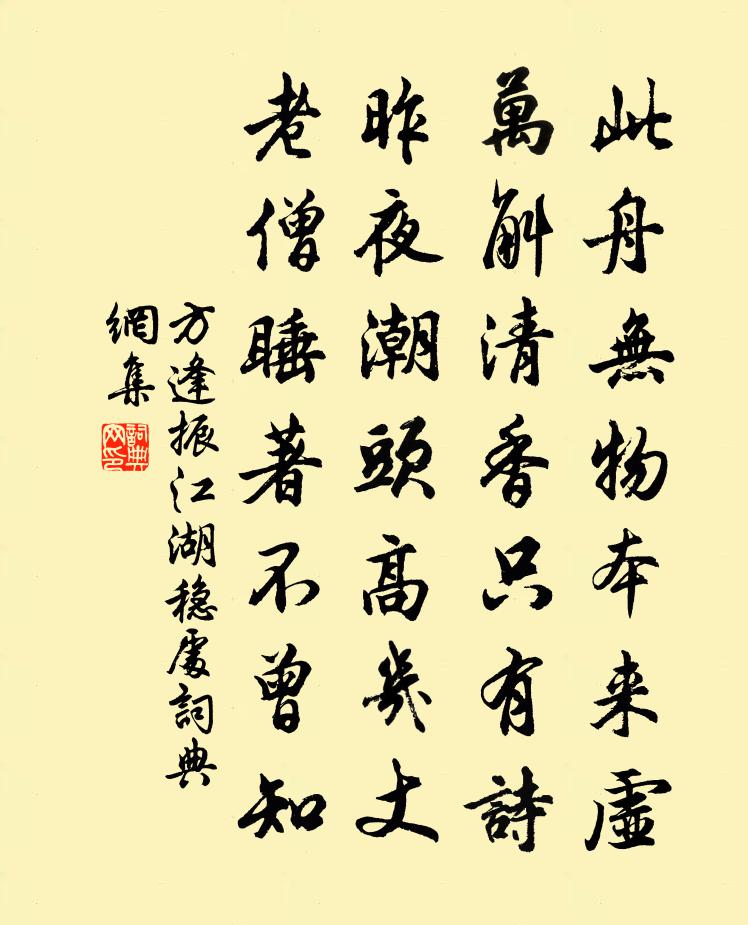 此舟無物本来虛
萬斛清香只有詩
昨夜潮頭高幾丈
老僧睡著不曾知
方逢振江湖穩處詞典
網集
詞典
网印